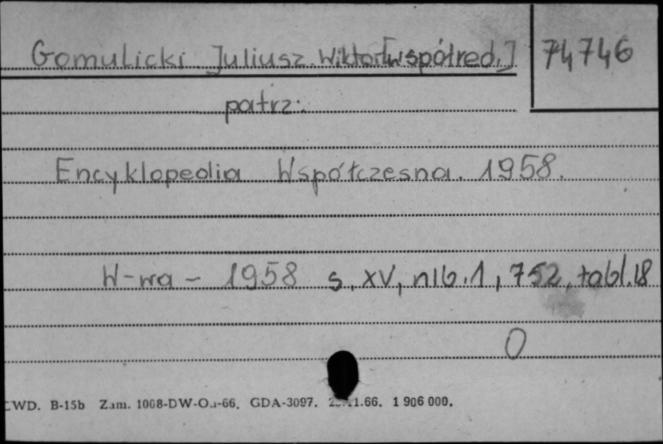 Gomulicki Juliusz Wiktor [współred.] 74746
patrz:
Encyklopedia Współczesna. 1958.
W-wa - 1958 s. XV, nlb. 1, 752, tabl. 18
0
LWD. B-15b Zam. 1008-DW-Oa-66. GDA-3097. 11.66. 1 906 000.